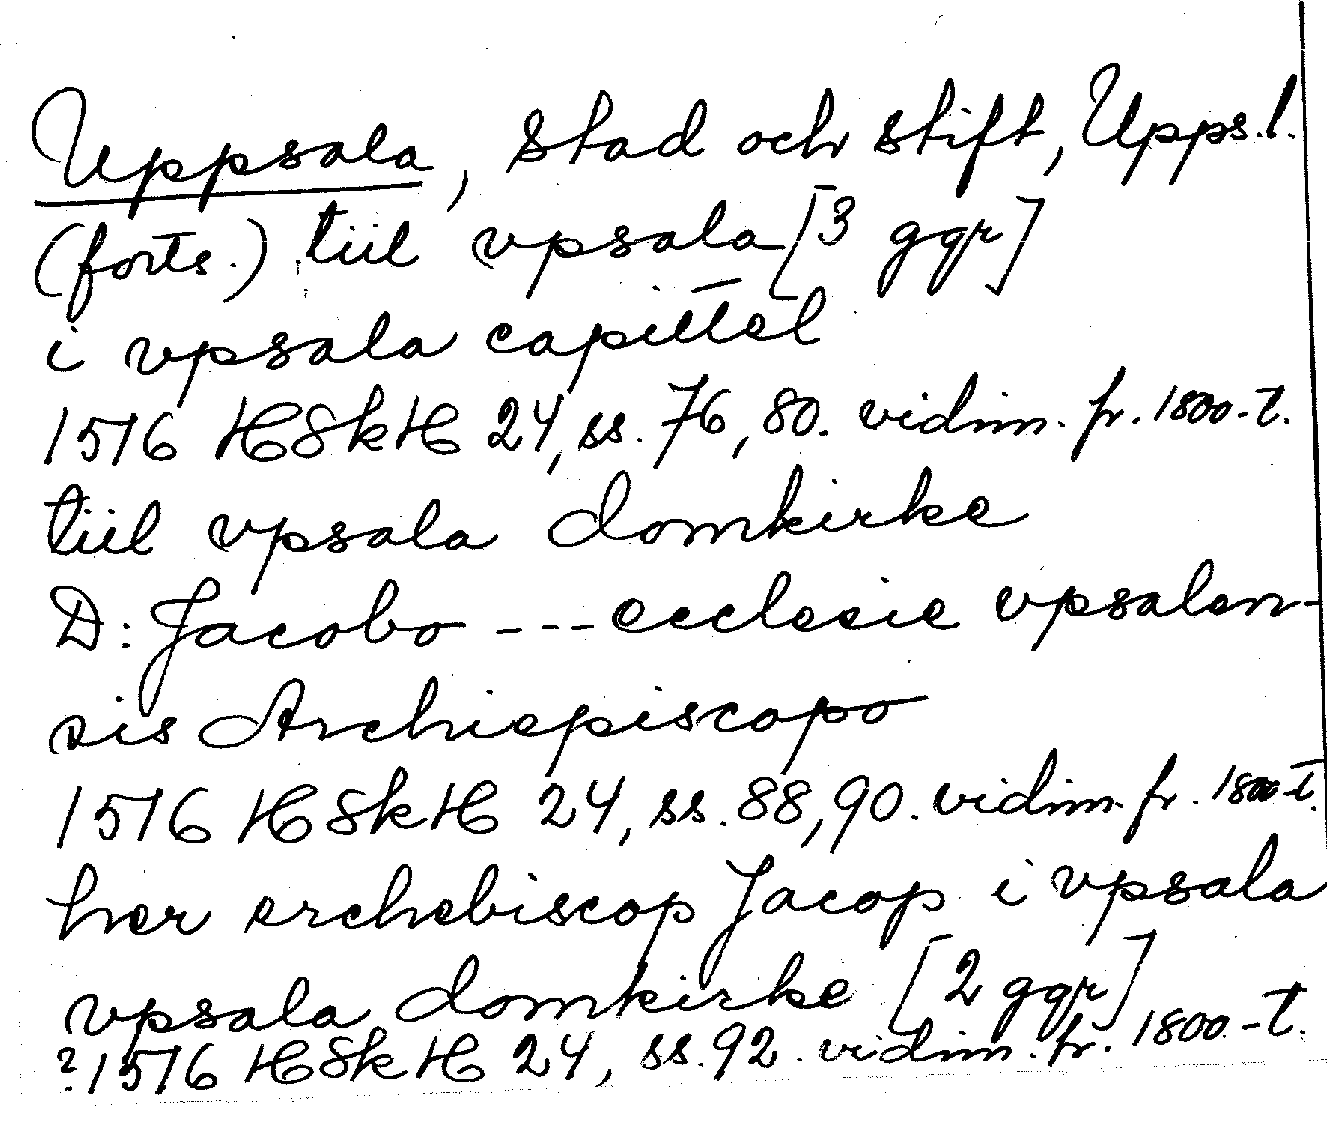 Uppsala, stad och stift, Upps.l.
(forts.) tiil vpsala [3 ggr]
i vpsala capittel
1516 HSkH 24, ss. 76, 80. vidim. fr. 1800-t.
tiil vpsala domkirke
D: Jacobo --- ecclesie vpsalen-
sis Archiepiscopo
1516 HSkH 24, ss. 88, 90. vidim. fr. 1800-t.
her erchebiscop Jacop i vpsala
vpsala domkirke [2 ggr]
?1516 HSkH 24, ss. 92. vidim. fr. 1800-t.